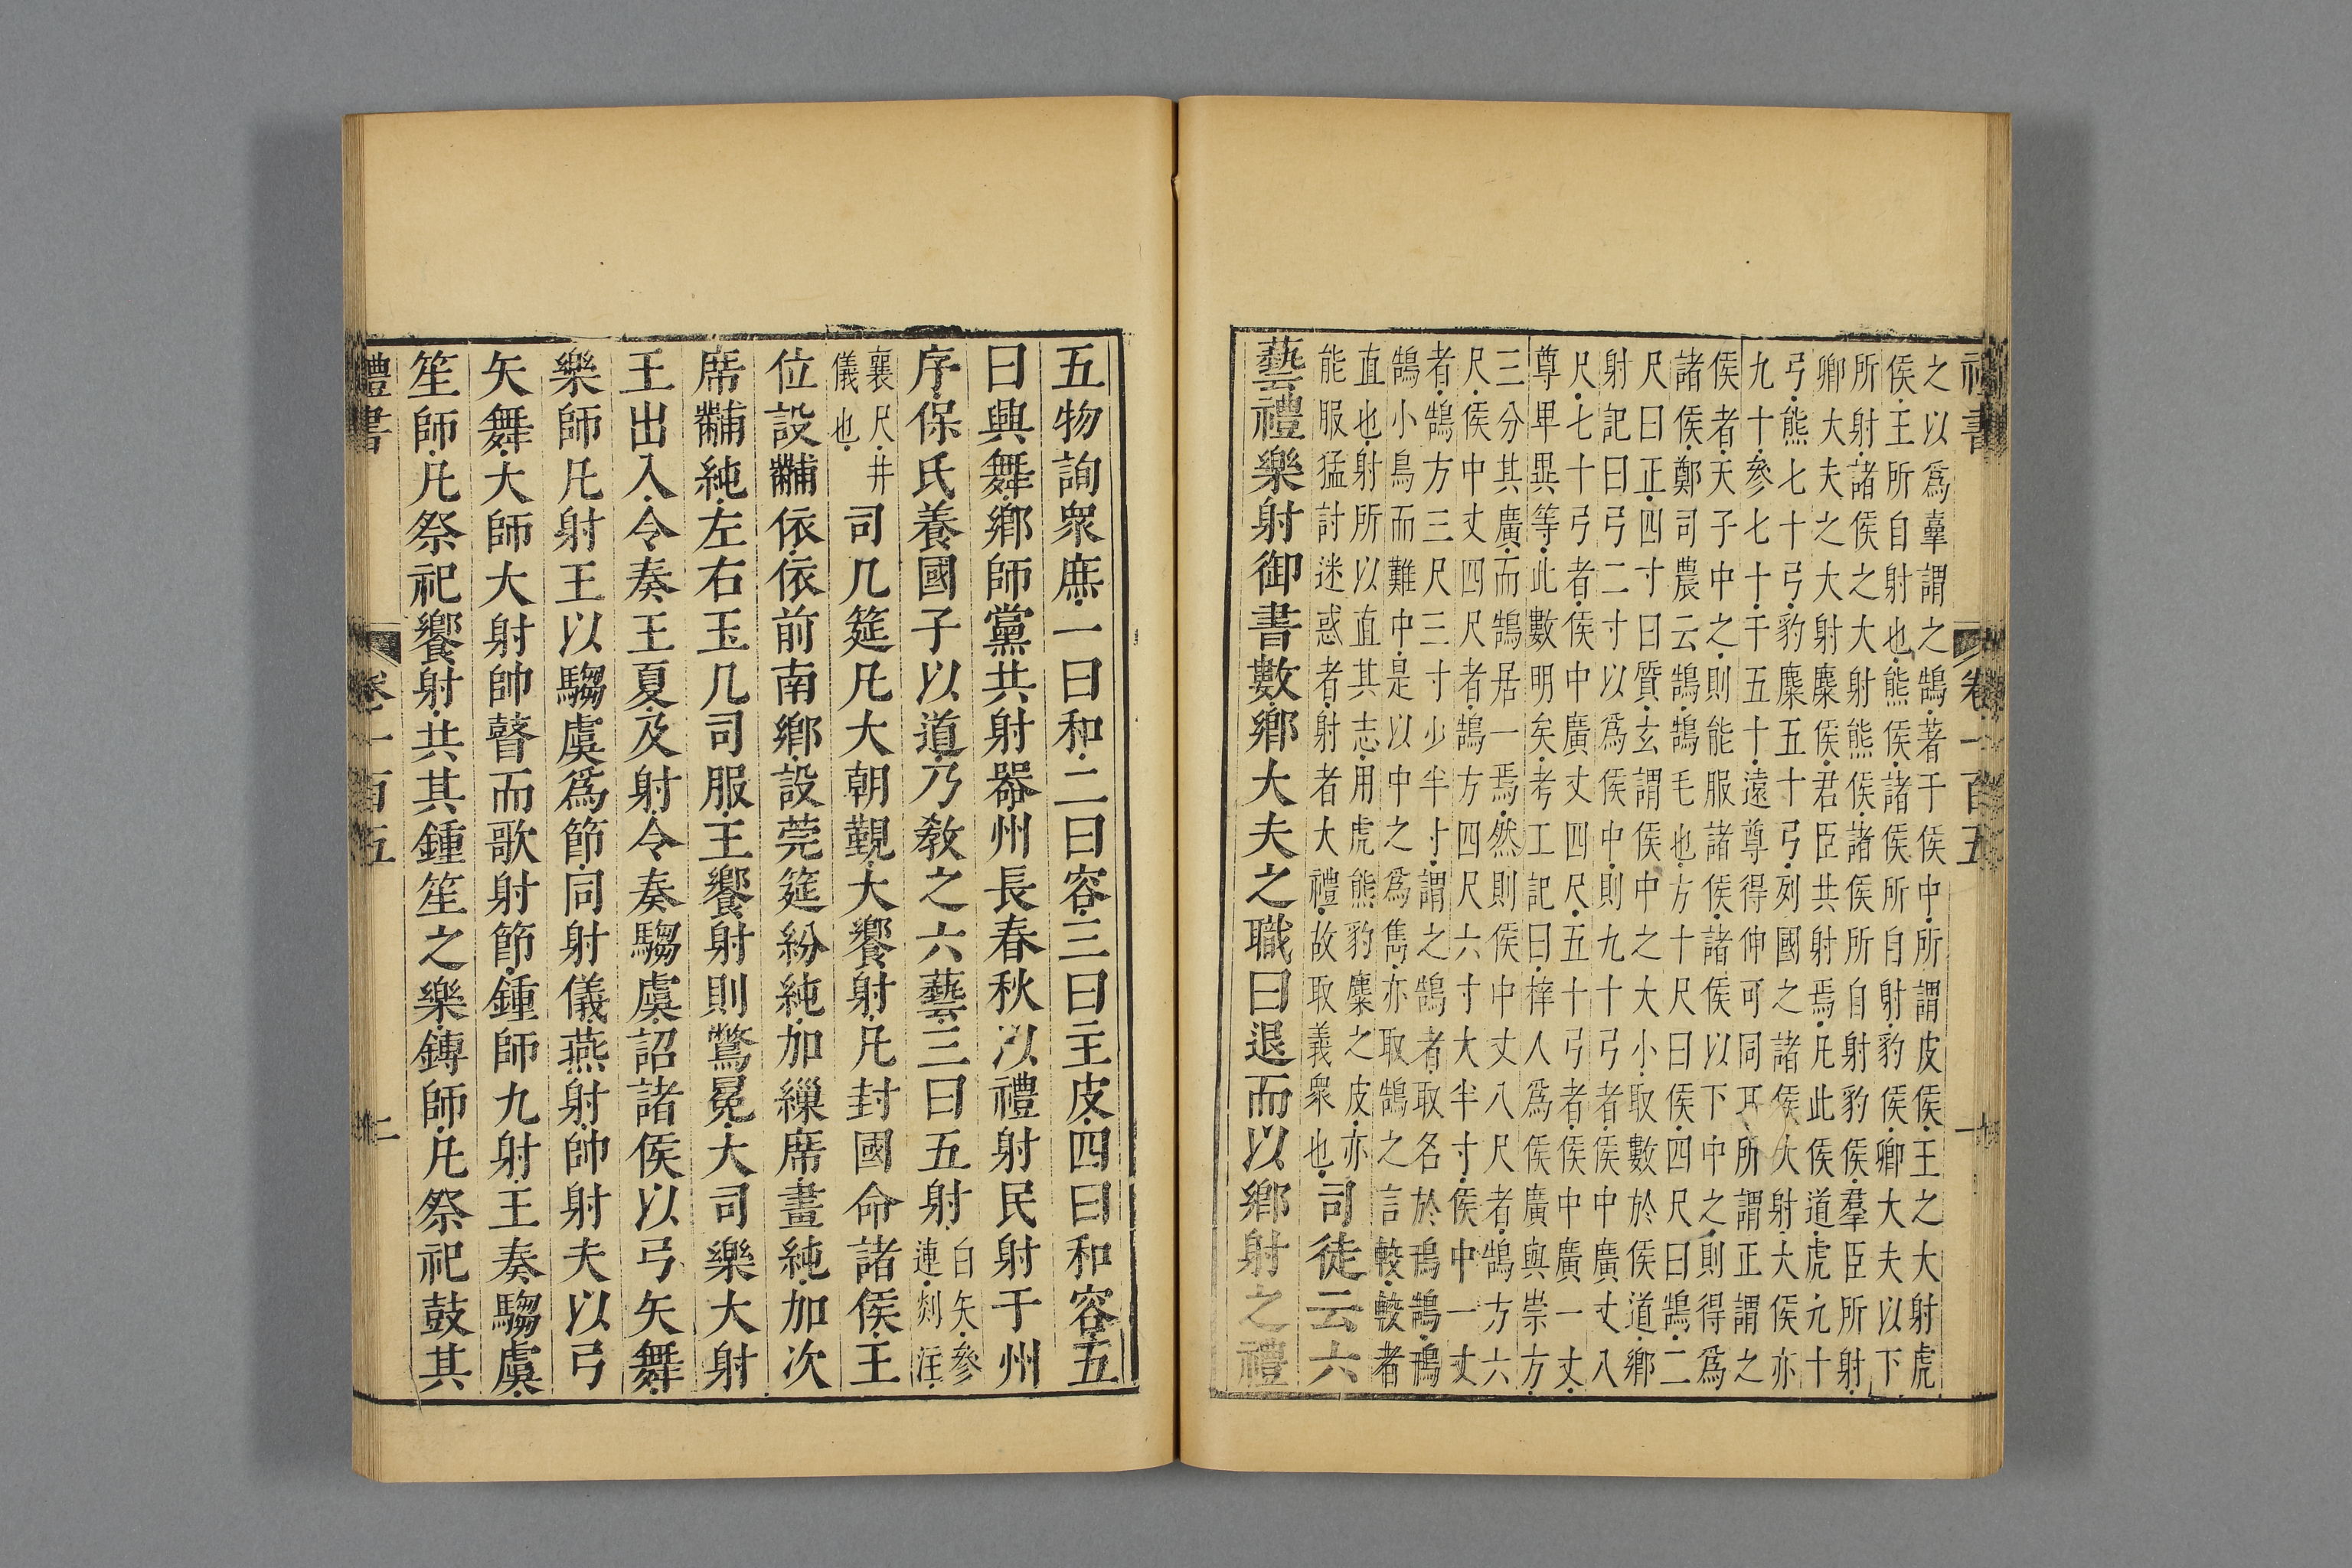 禮書 卷一百五 十
之以爲𦎫謂之鵠著于侯中所謂皮侯王之大射虎
侯王所自射也熊侯諸侯所自射豹侯卿大夫以下
所射諸侯之大射熊侯諸侯所自射豹侯羣臣所射
卿大夫之大射麋侯君臣共射焉凡此侯道虎元十
弓熊七十弓豹麋五十弓列國之諸侯大射大侯亦
九十參七十干五十遠尊得伸可同耳所謂正謂之
侯者天子中之則能服諸侯諸侯以下中之則得爲
諸侯鄭司農云鵠鵠毛也方十尺曰侯四尺曰鵠二
尺曰正四寸曰質玄謂侯中之大小取數於侯道鄉
射記曰弓二寸以爲侯中則九十弓者侯中廣丈八
尺七十弓者侯中廣丈四尺五十弓者侯中廣一丈
尊卑異等此數明矣考工記曰梓人爲侯廣與崇方
三分其廣而鵠居一焉然則侯中丈八尺者鵠方六
尺侯中丈四尺者鵠方四尺六寸大半寸侯中一丈
者鵠方三尺三寸少半寸謂之鵠者取名於鳱鵠鳱
鵠小鳥而難中是以中之爲雋亦取鵠之言較較者
直也射所以直其志用虎熊豹麋之皮亦
能服猛討迷惑者射者大禮故取義衆也
司徒云六
藝禮樂射御書數鄉大夫之職曰退而以鄉射之禮
五物詢衆庶一曰和二曰容三曰主皮四曰和容五
曰興舞鄉師黨共射器州長春秋以禮射民射于州
序保氏養國子以道乃教之六藝三曰五射白矢參連剡注
襄尺井儀也司几筵凡大朝覲大饗射凡封國命諸侯王
位設黼依依前南鄉設莞筵紛純加繅席畫純加次
席黼純左右玉几司服王饗射則鷩冕大司樂大射
王出入令奏王夏及射令奏騶虞詔諸侯以弓矢舞
樂師凡射王以騶虞爲節同射儀燕射帥射夫以弓
矢舞大師大射帥瞽而歌射節鍾師九射王奏騶虞
笙師凡祭祀饗射共其鍾笙之樂鎛師凡祭祀鼓其
禮書 卷一百五 十一